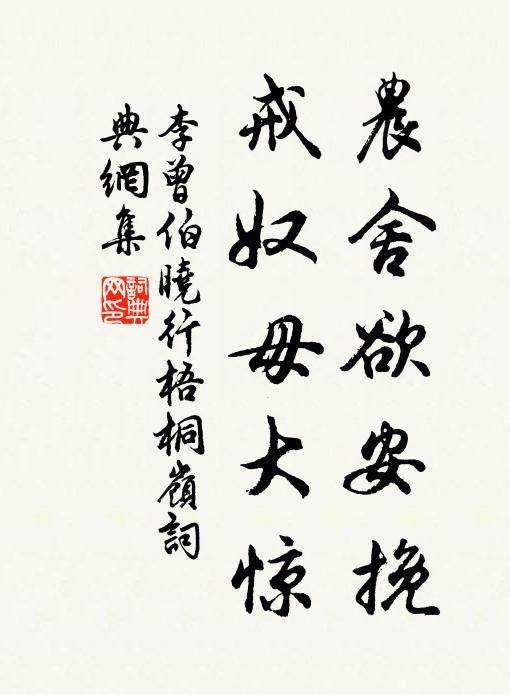 農舍欲安挽
戒奴毋大惊
李曾伯曉行梧桐嶺詞
典網集
詞典
网印